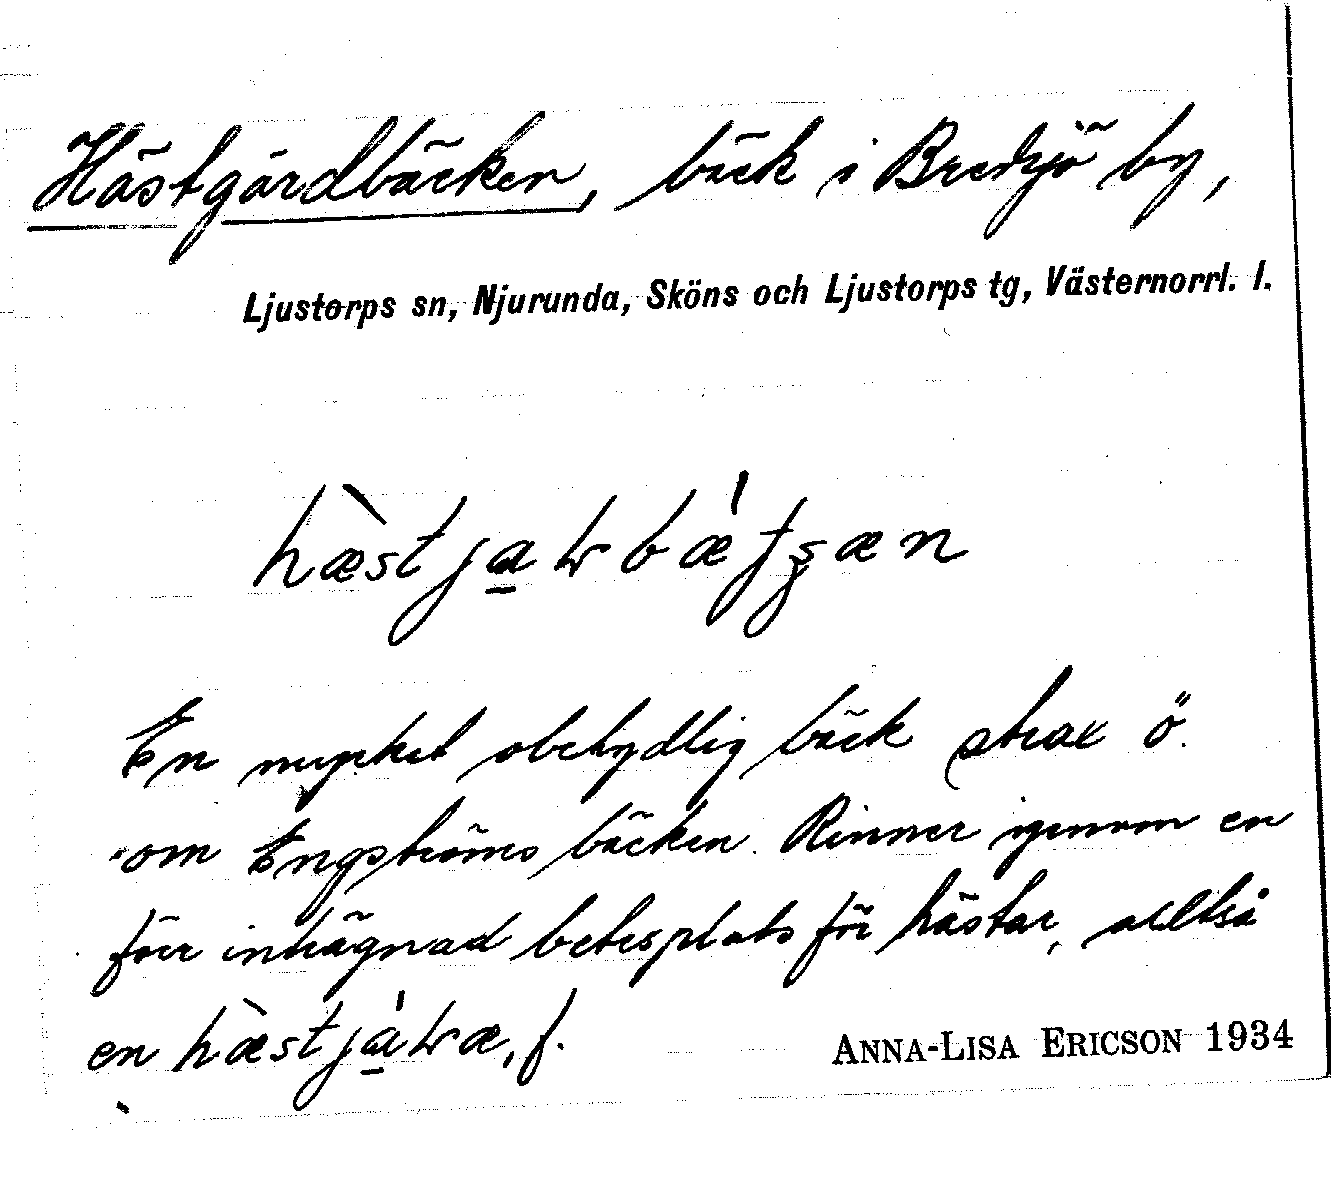 Hästgårdbäcken, bäck i Bredsjö by,
Ljustorps sn, Njurunda, Sköns och Ljustorps tg, Västernorrl. l.
En mycket obetydlig bäck strax ö.
om Engströms bäcken. Rinner igenom en
förr inhägnad betesplats för hästar, alltså
en
f.
ANNA-LISA ERICSON 1934